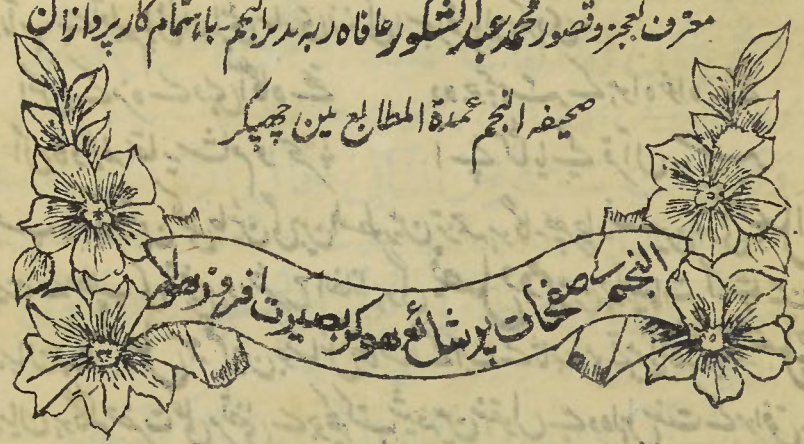 معترف العجز وقصور محمد عبدالشکور عافاہ ربہ مدیر النجم باہتمام کارپردازان
صحیفہ النجم عمدۃ المطابع مین چھپکر
النجم کے صفحات پر شائع ہوکر بصیرت افروز ہوا